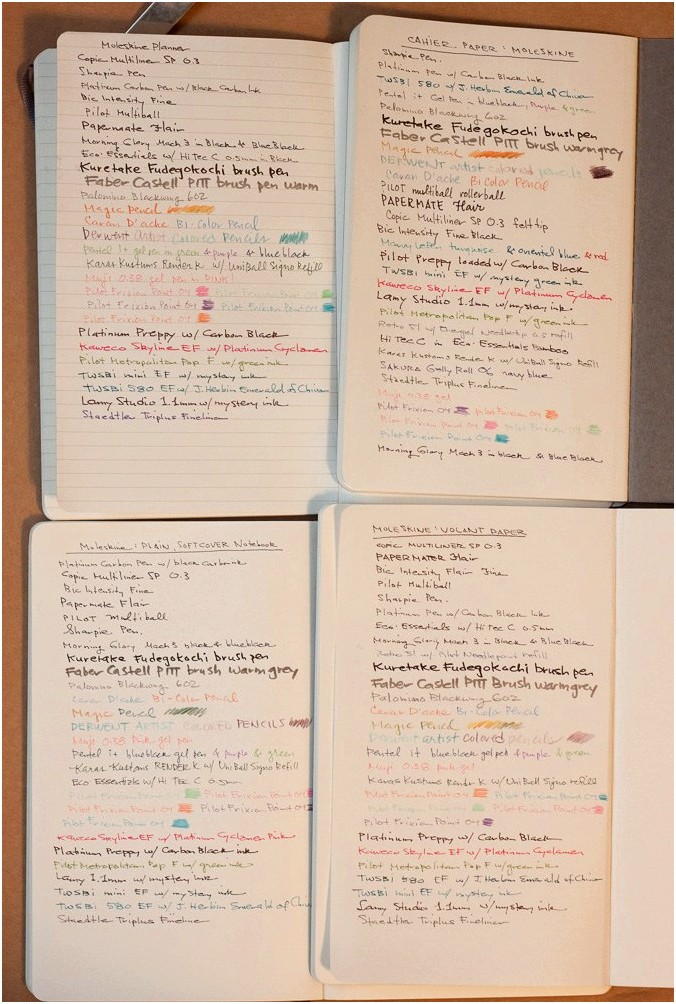 Moleskine Planner
Copic Multiliner SP 0.3
Sharpie Pen
Platinum Carbon Pen w/ Black Carbon Ink
Bic Intensity Fine
Pilot Multiball
Papermate Flair
Morning Glory Mach 3 in Black & BlueBlack
Eco-Essentials w/ HiTec C 0.5mm in Black
Kuretake Fudegokochi brush pen
Faber Castell PITT brush pen warm
Palomino Blackwing 602
Magic Pencil
Caran D'ache Bi-Color Pencil
Derwent Artist Colored Pencils
Pentel it gel pen in green & purple & blueblack
Karas Kustoms Render K w/ UniBall Signo Refill
Muji 0.38 gel pen in PINK!
Pilot Frixion Point 04 Pilot Frixion Point 04
Pilot Frixion Point 04 Pilot Frixion Point 04
Pilot Frixion Point 04
Platinum Preppy w/ Carbon Black
Kaweco Skyline EF w/ Platinum Cyclamen
Pilot Metropolitan Pop F w/ green ink
TWSBi mini EF w/ mystery ink
TWSBi 580 EF w/ J. Herbin Emerald of Chivor
Lamy Studio 1.1mm w/ mystery ink
Staedtler Triplus Fineliner
CAHIER PAPER: MOLESKINE
Sharpie Pen.
Platinum Pen w/ Carbon Black Ink
TWSBi 580 w/ J. Herbin Emerald of Chivor
Pentel it Gel Pen in blueblack, purple & green
Palomino Blackwing 602
Kuretake Fudegokochi brush pen
Faber Castell PITT brush warm grey
Magic Pencil
DERWENT artist colored pencils
Caran D'ache Bi Color Pencil
PILOT multiball rollerball
PAPERMATE Flair
Copic Multiliner SP 0.3 felt tip
Bic Intensity Fine Black
turquoise & oriental blue & red
Pilot Preppy loaded w/ Carbon Black
TWSBi mini EF w/ mystery green ink
Kaweco Skyline EF w/ Platinum Cyclamen
Lamy Studio 1.1mm w/ mystery ink
Pilot Metropolitan Pop F w/ green ink
Retro 51 w/ Needletip refill
Hi Tec C in Eco-Essentials Bamboo
Karas Kustoms Render K w/ UniBall Signo Refill
SAKURA Gelly Roll 06 navy blue
Staedtler Triplus Fineliner
Muji 0.38 gel
Pilot Frixion 04 pilot Frixion 04
Pilot Frixion Point 04 pilot Frixion 04
Pilot Frixion Point 04
Morning Glory Mach 3 in black & Blue Black
Moleskine: PLAIN, SOFTCOVER Notebook
Platinum Carbon Pen w/ black carbon ink
Copic Multiliner SP 0.3
Bic Intensity Fine
Papermate Flair
PILOT Multiball
Sharpie Pen.
Morning Glory Mach 3 black & blueblack
Kuretake Fudegokochi brush pen
Faber Castell PITT brush warm grey
Palomino Blackwing 602
Caran D'ache Bi-Color Pencil
Magic Pencil
DERWENT ARTIST COLORED PENCILS
Muji 0.38 Pink gel pen
Pentel it blueblack gel pen & purple & green
Karas Kustoms RENDER K w/ UniBall Signo Refill
Eco Essentials w/ Hi Tec C 0.5mm
Pilot Frixion Point 04 Pilot Frixion Point 04
Pilot Frixion Point 04 Pilot Frixion Point 04
Pilot Frixion Point 04
Kaweco Skyline EF w/ Platinum Cyclamen Pink
Platinum Preppy w/ Carbon Black ink
Pilot Metropolitan Pop F w/ green ink
Lamy 1.1mm w/ mystery ink
TWSBi mini EF w/ mystery ink
TWSBi 580 EF w/ J. Herbin Emerald of Chiv
Staedtler Triplus Fineliner
MOLESKINE: VOLANT PAPER
COPIC MULTILINER SP 0.3
PAPERMATER Flair
Bic Intensity Flair Fine
Pilot Multiball
Sharpie Pen.
Platinum Pen w/ Carbon Black Ink
Eco-Essentials w/ Hi Tec C 0.5mm
Morning Glory Mach 3 in Black & BlueBlack
Retro 51 w/ Pilot Needlepoint refill
Kuretake Fudegokochi brush pen
Faber Castell PITT Brush warmgrey
Palomino Blackwing 602
Caran D'ache Bi-Color Pencil
Magic Pencil
Derwent artist colored pencils
Pentel it blueblack gel ped & purple & green
Muji 0.38 pink gel
Karas Kustoms Render K w/ UniBall Signo refill
Pilot Frixion Point 04 Pilot Frixion Point 04
Pilot Frixion Point 04 Pilot Frixion Point 04
Pilot Frixion Point 04
Platinum Preppy w/ Carbon Black
Kaweco Skyline EF w/ Platinum Cyclamen
Pilot Metropolitan Pop F w/ green ink
TWSBi 580 EF w/ J. Herbin Emerald of Chivor
TWSBi mini EF w/ mystery ink
Lamy Studio 1.1mm w/ mystery ink
Staedtler Triplus Fineliner